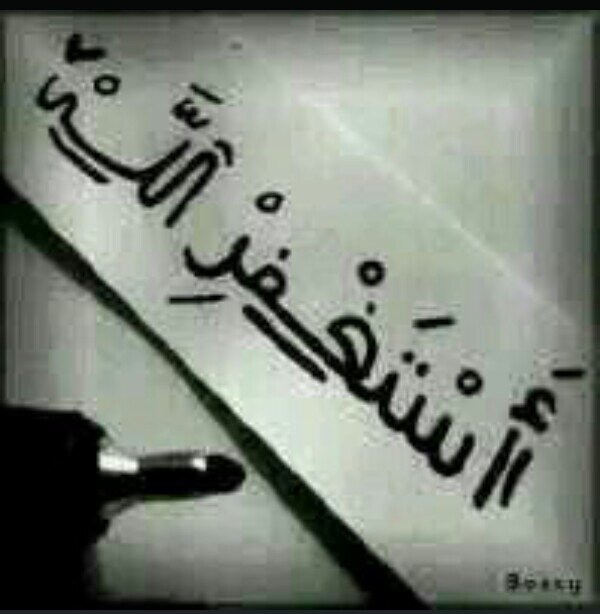 أَسْتَغْفِرْ اللَّه
Bossy